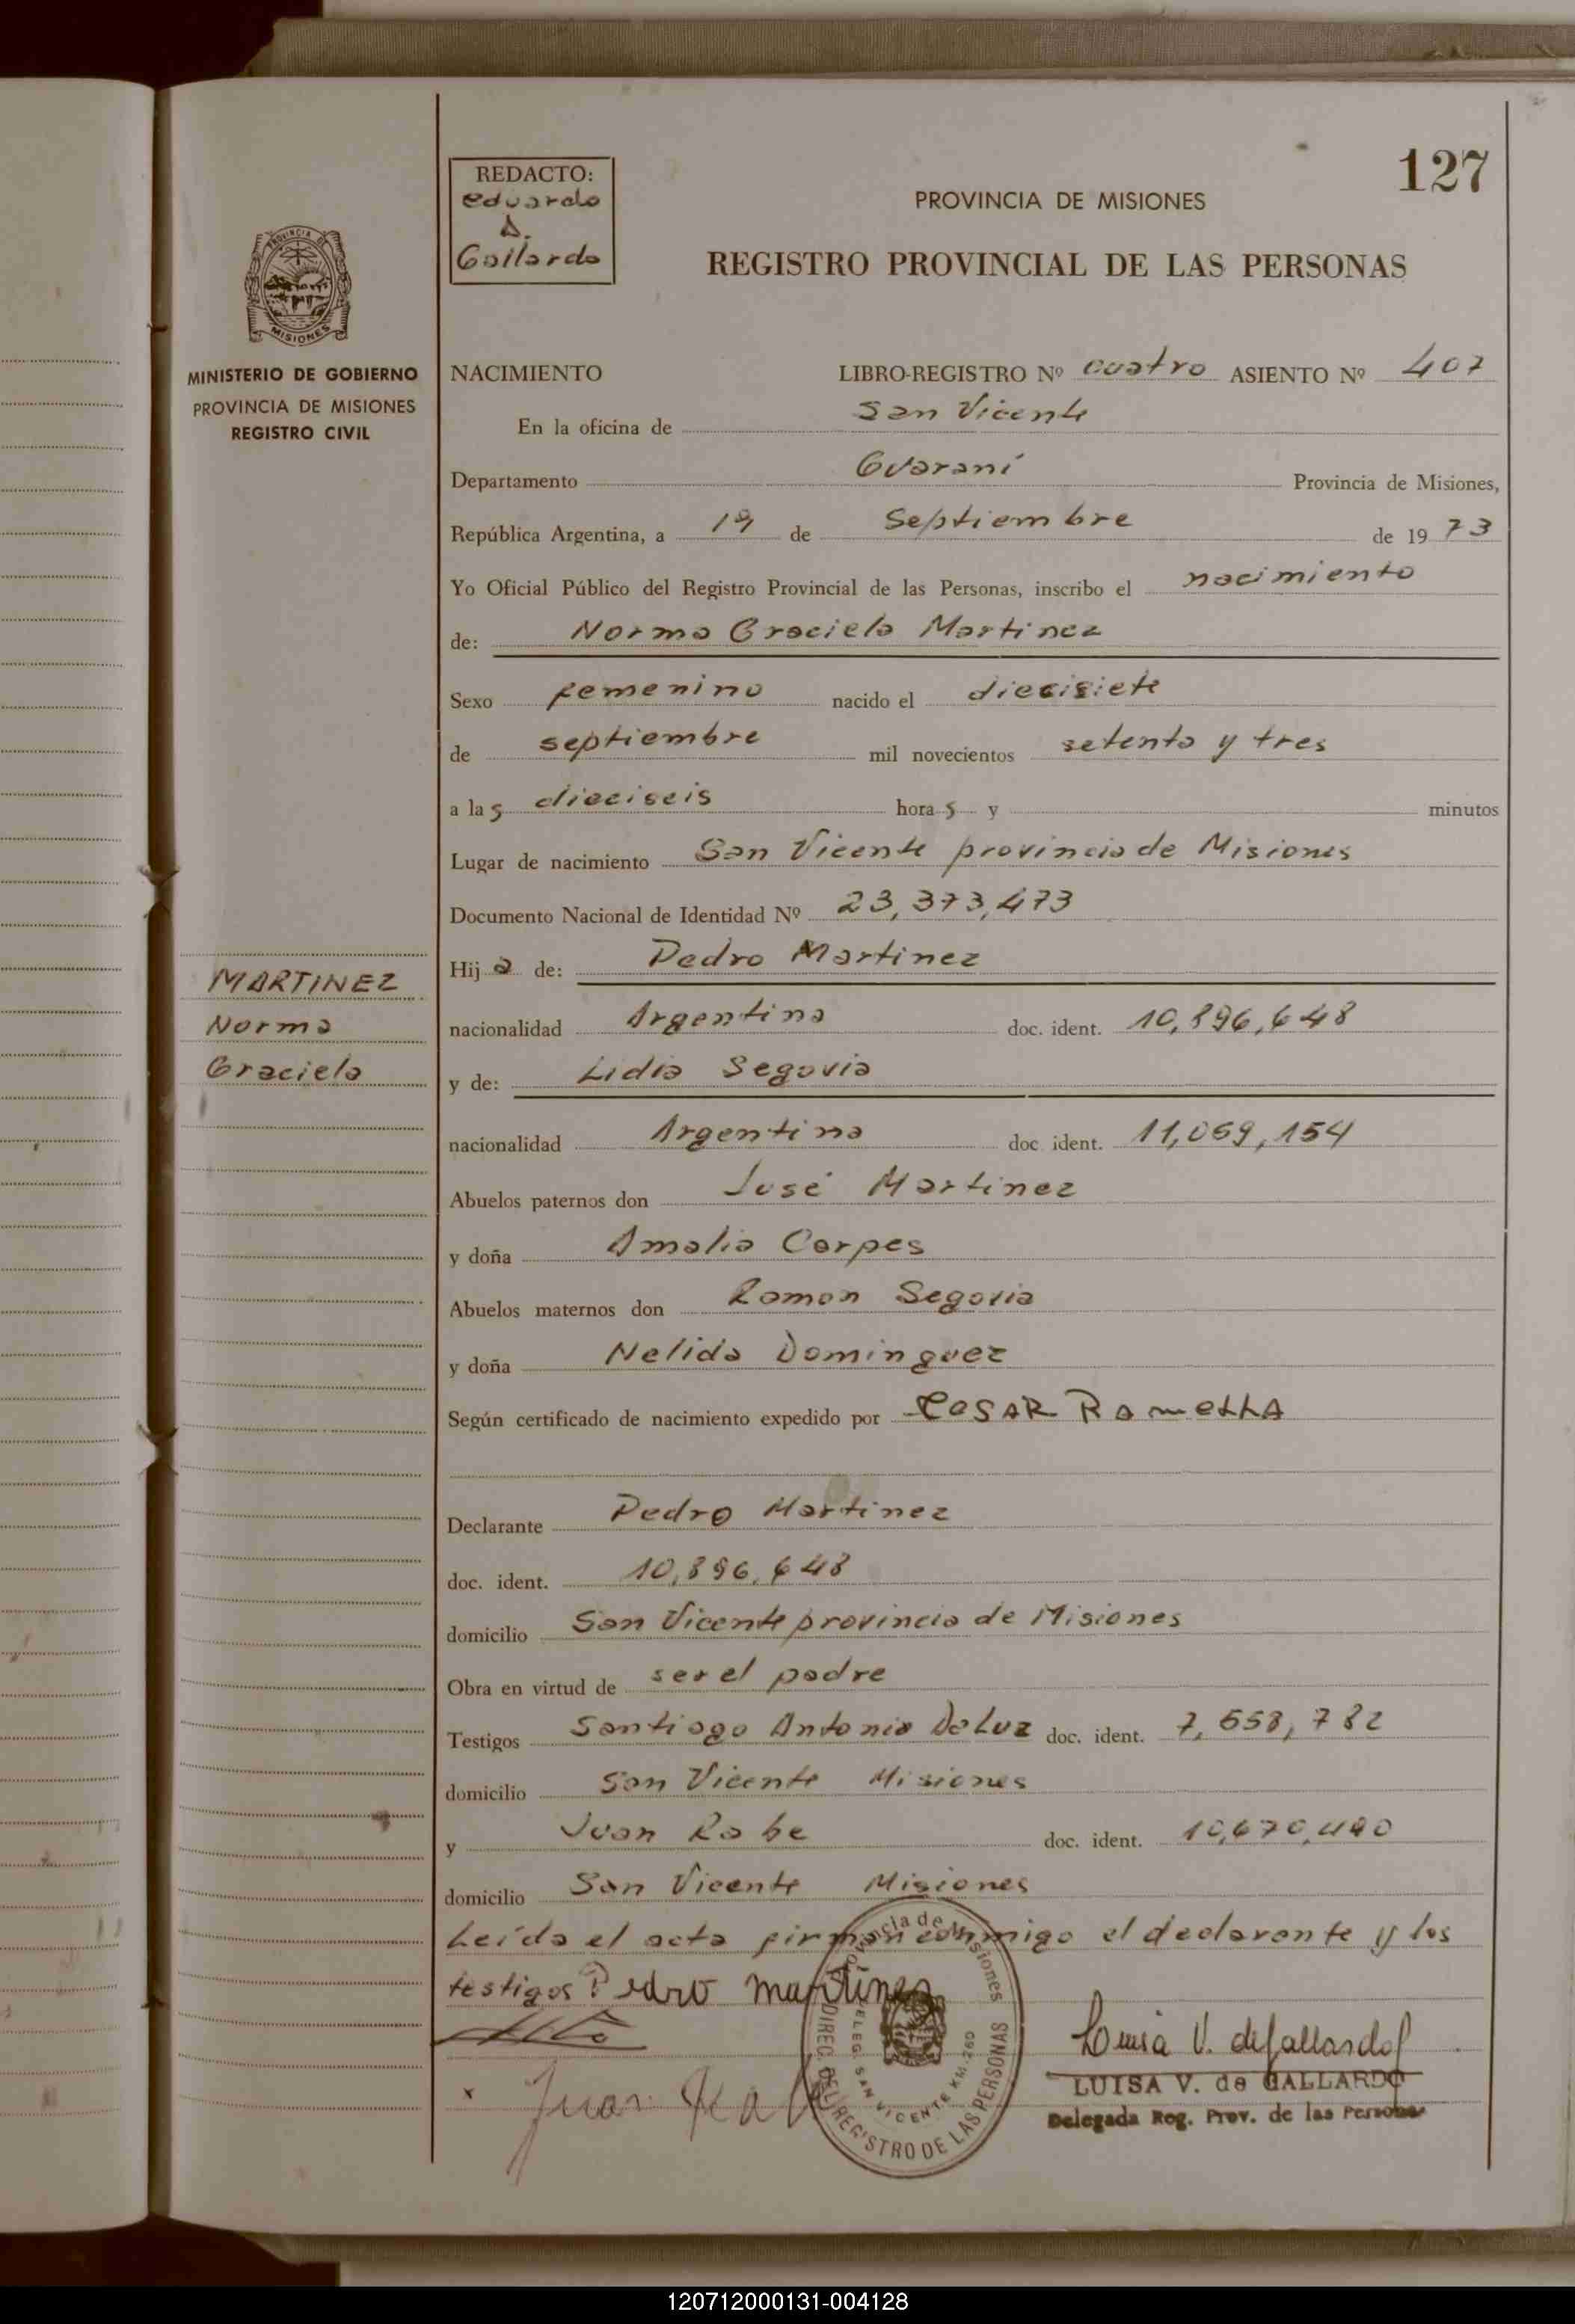 127
REDACTO:
eduardo
A.
Gallardo
PROVINCIA DE MISIONES
REGISTRO PROVINCIAL DE LAS PERSONAS
PROVINCIA DE
MISIONES
MINISTERIO DE GOBIERNO
PROVINCIA DE MISIONES
REGISTRO CIVIL
NACIMIENTO LIBRO-REGISTRO Nº cuatro ASIENTO Nº 407
En la oficina de San Vicente
Departamento Guaraní Provincia de Misiones,
República Argentina, a 19 de septiembre de 1973
Yo Oficial Público del Registro Provincial de las Personas, inscribo el nacimiento
de: Norma Graciela Martinez
Sexo femenino nacido el diecisiete
de septiembre mil novecientos setenta y tres
a las dieciseis horas y minutos
Lugar de nacimiento San Vicente provincia de Misiones
Documento Nacional de Identidad Nº 23,373,473
Hija de: Pedro Martinez
MARTINEZ
Norma
Graciela
nacionalidad Argentina doc. ident. 10,896,648
y de: Lidia Segovia
nacionalidad Argentina doc. ident. 11,059,154
Abuelos paternos don José Martinez
y doña Amalia Carpes
Abuelos maternos don Ramon Segovia
y doña Nelida Dominguez
Según certificado de nacimiento expedido por COSAR RAMELLA
Declarante Pedro Martinez
doc. ident. 10,896,648
domicilio San Vicente provincia de Misiones
Obra en virtud de ser el padre
Testigos Santiago Antonio DaLuz doc. ident. 7,558,782
domicilio San Vicente Misiones
y Juan Rabe doc. ident. 10,670,440
domicilio San Vicente Misiones
Leída el acta firman conmigo el declarante y los
testigos Pedro martinez
Luisa V. de Gallardo
LUISA V. de GALLARDO
Delegada Reg. Prov. de las Personas
x Juan Rabe
Provincia de Misiones
DIREC. DEL REGISTRO DE LAS PERSONAS
DELEG. SAN VICENTE KM. 260
120712000131-004128